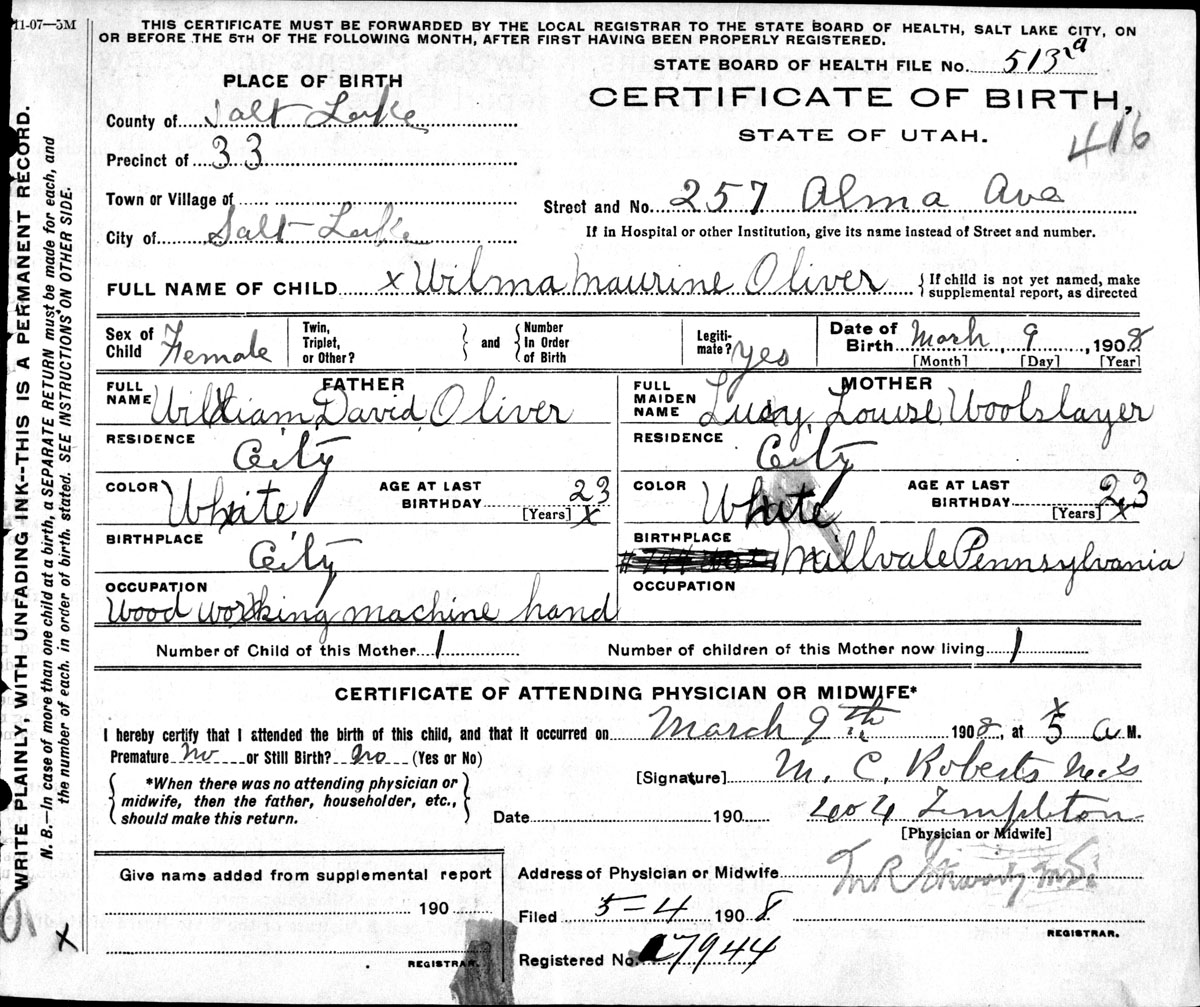 11-07—5M
THIS CERTIFICATE MUST BE FORWARDED BY THE LOCAL REGISTRAR TO THE STATE BOARD OF HEALTH, SALT LAKE CITY, ON
OR BEFORE THE 5TH OF THE FOLLOWING MONTH, AFTER FIRST HAVING BEEN PROPERLY REGISTERED.
STATE BOARD OF HEALTH FILE No. 513 ra
PLACE OF BIRTH
CERTIFICATE OF BIRTH,
STATE OF UTAH.
416
County of Salt Lake
Precinct of 33
Town or Village of
Street and No. 257 Alma Ave
City of Salt Lake
If in Hospital or other Institution, give its name instead of Street and number.
FULL NAME OF CHILD x Wilma Maurine Oliver { If child is not yet named, make
supplemental report, as directed
Sex of Child Female Twin, Triplet, or Other? } and { Number In Order of Birth Legitimate? Yes Date of Birth March, 9, 1908
[Month] [Day] [Year]
FATHER
FULL NAME William David Oliver
MOTHER
FULL MAIDEN NAME Lucy Louise Woolslayer
RESIDENCE City
RESIDENCE City
COLOR White AGE AT LAST BIRTHDAY 23 [Years] x
COLOR White AGE AT LAST BIRTHDAY 23 [Years] x
BIRTHPLACE City
BIRTHPLACE Millvale Pennsylvania
OCCUPATION
Wood working machine hand
OCCUPATION
Number of Child of this Mother 1 Number of children of this Mother now living 1
CERTIFICATE OF ATTENDING PHYSICIAN OR MIDWIFE*
I hereby certify that I attended the birth of this child, and that it occurred on March 9th 1908, at 5 a M.
x
Premature No or Still Birth? No (Yes or No)
{ *When there was no attending physician or
midwife, then the father, householder, etc.,
should make this return. }
[Signature] M. C. Roberts
Date 190 404 Templeton
[Physician or Midwife]
Give name added from supplemental report
190
REGISTRAR.
Address of Physician or Midwife
Filed 5-4 1908
REGISTRAR.
Registered No. 7944
WRITE PLAINLY, WITH UNFADING INK--THIS IS A PERMANENT RECORD.
N. B.—In case of more than one child at a birth, a SEPARATE RETURN must be made for each, and
the number of each. in order of birth. stated. SEE INSTRUCTIONS ON OTHER SIDE.
x